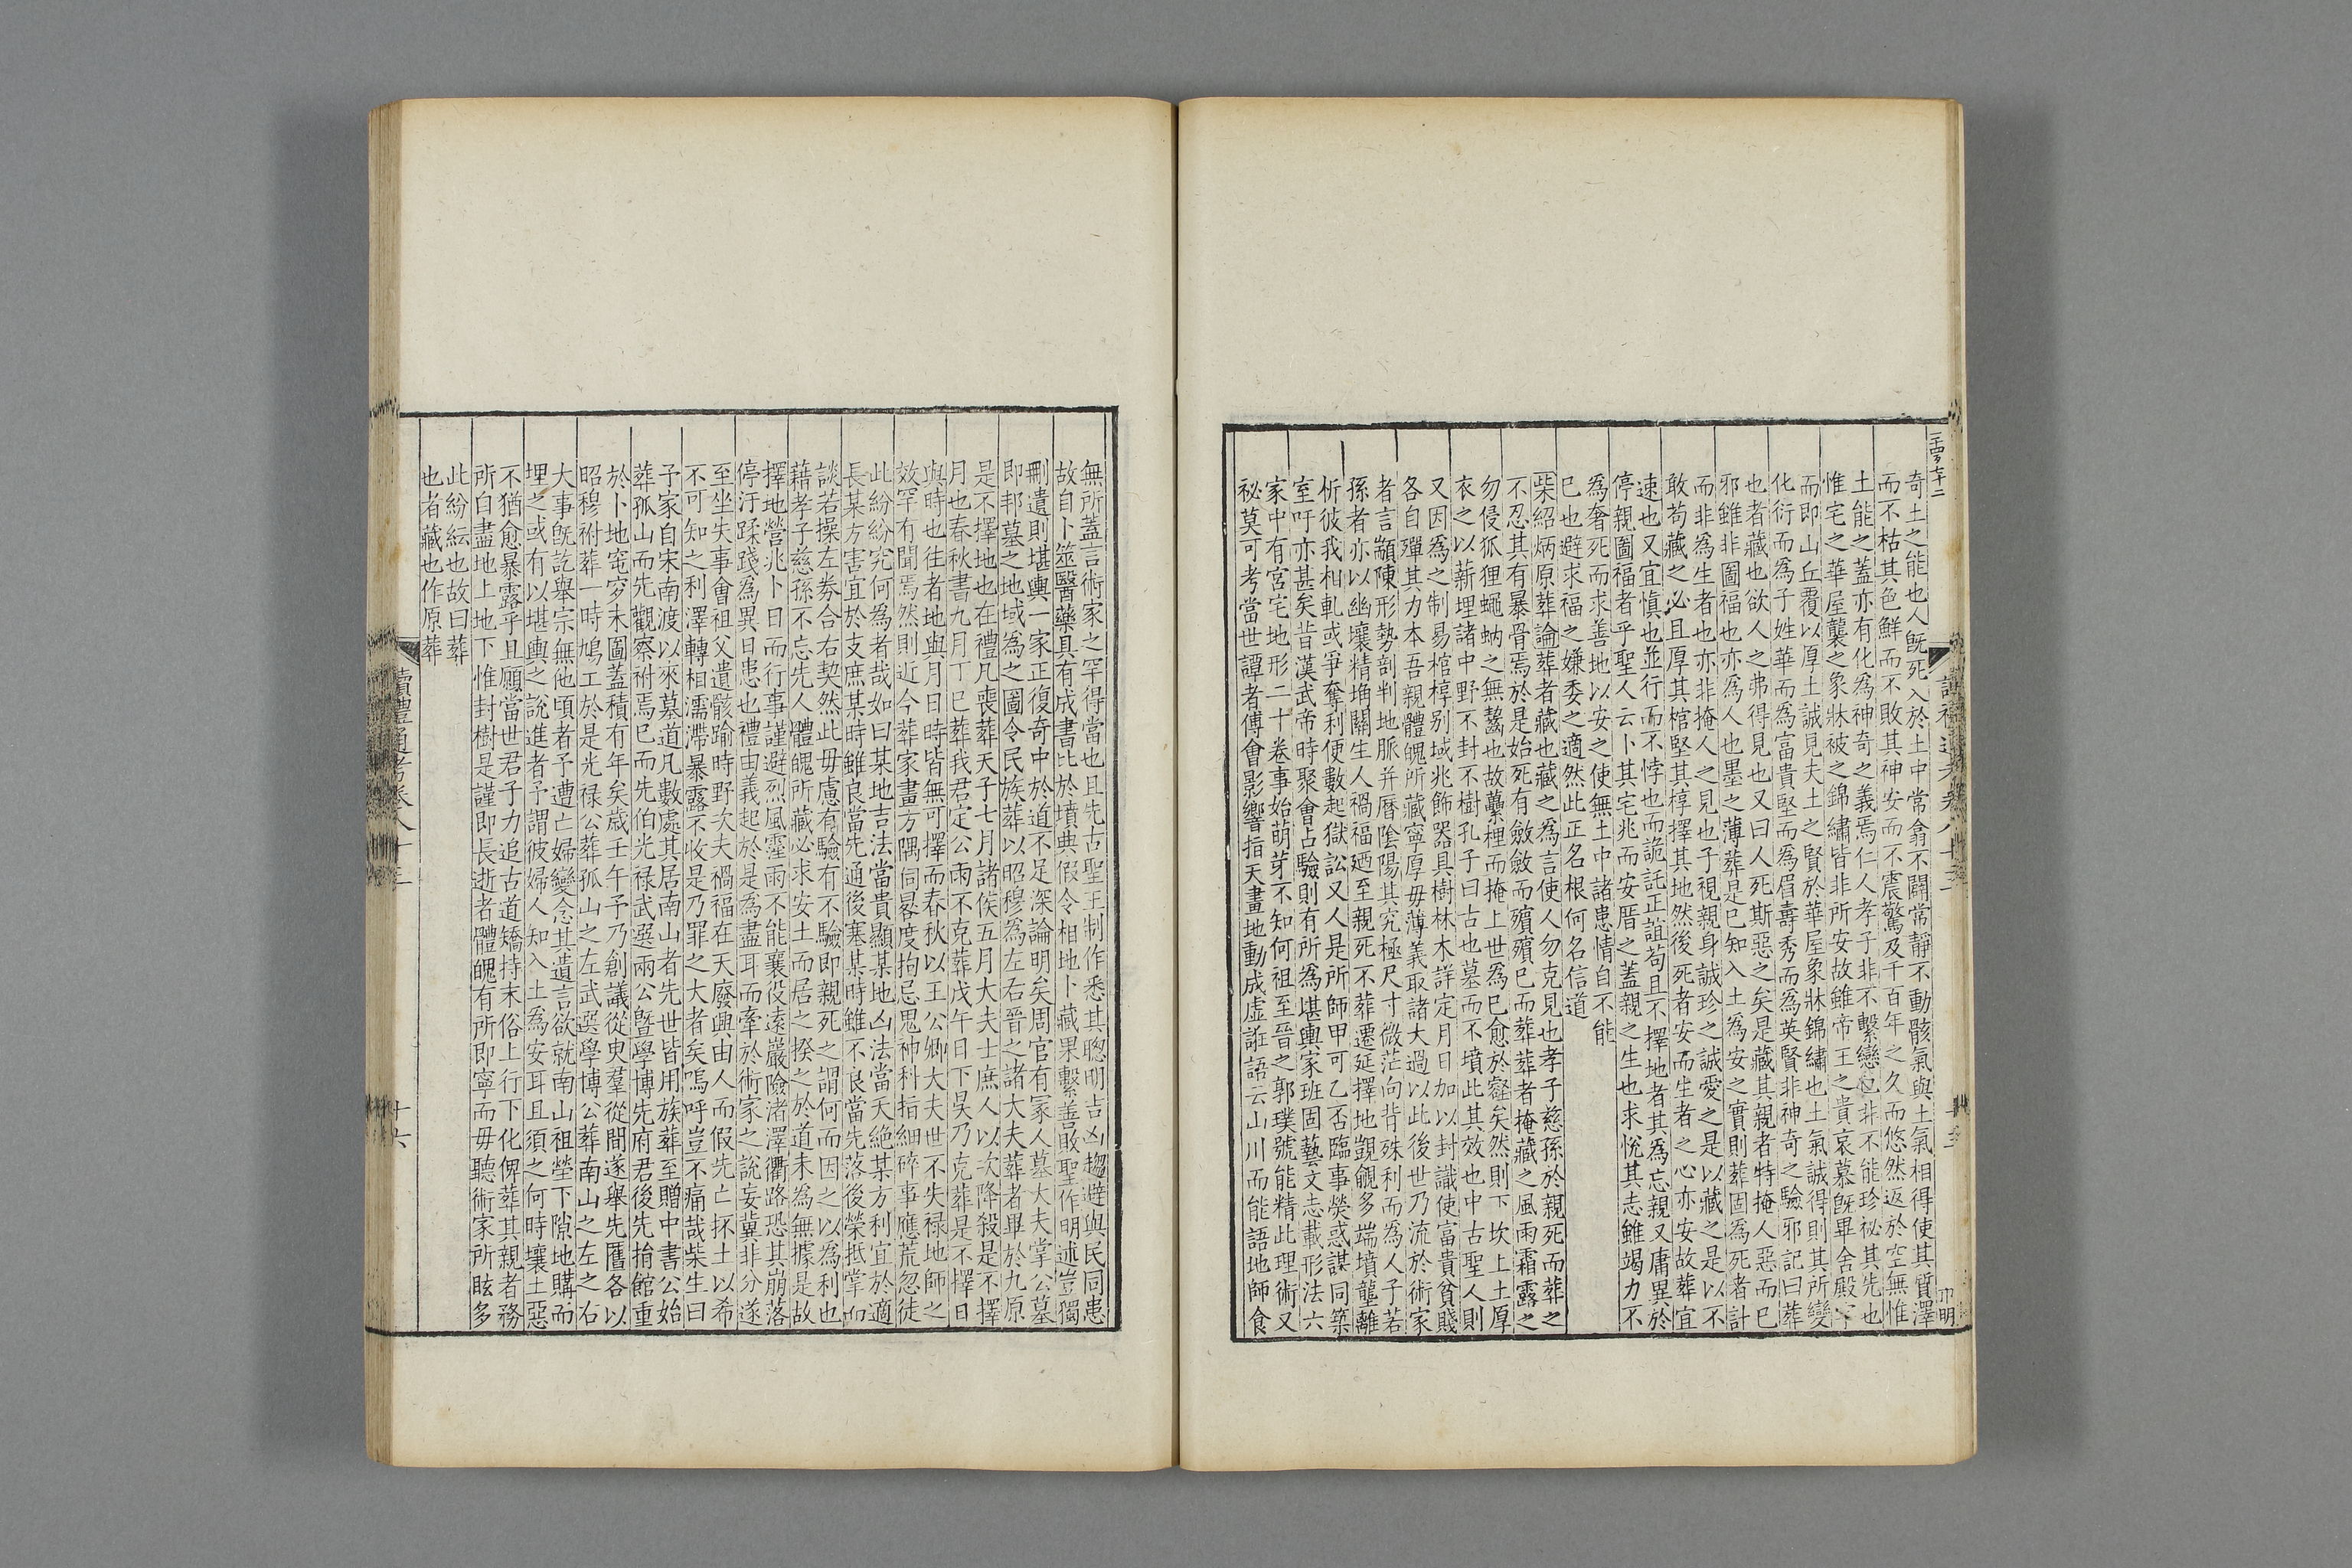 奇土之能也人旣死入於土中常翕不闢常靜不動骸氣與土氣相得使其質澤
而不枯其色鮮而不敗其神安而不震驚及千百年之久而悠然返於空無惟
土能之蓋亦有化爲神奇之義焉仁人孝子非不繫戀也非不能珍祕其先也
惟宅之華屋襲之象牀被之錦繡皆非所安故雖帝王之貴哀慕旣畢舍殿
而即山丘覆以厚土誠見夫土之賢於華屋象牀錦繡也土氣誠得則其所變
化衍而爲子姓華而爲富貴堅而爲眉壽秀而爲英賢非神奇之驗邪記曰葬
也者藏也欲人之弗得見也又曰人死斯惡之矣是藏其親者特掩人惡而已
邪雖非圖福也亦爲人也墨之薄葬是已知入土爲安之實則葬固爲死者計
而非爲生者也亦非掩人之見也子視親身誠珍之誠愛之是以藏之是以不
敢苟藏之必且厚其棺堅其椁擇其地然後死者安而生者之心亦安故葬宜
速也又宜愼也並行而不悖也而詭託正誼苟且不擇地者其爲忘親又庸異於
停親圖福者乎聖人云卜其宅兆而安厝之蓋親之生也求悅其志雖竭力不
爲奢死而求善地以安之使無土中諸患情自不能
已也避求福之嫌委之適然此正名根何名信道
柴紹炳原葬論葬者藏也藏之爲言使人勿克見也孝子慈孫於親死而葬之
不忍其有暴骨焉於是始死有斂斂而殯殯已而葬葬者掩藏之風雨霜露之
勿侵狐狸蠅蚋之無齧也故虆梩而掩上世爲已愈於壑矣然則下坎上土厚
衣之以薪埋諸中野不封不樹孔子曰古也墓而不墳此其效也中古聖人則
又因爲之制易棺椁别域兆飾器具樹林木詳定月日加以封識使富貴貧賤
各自殫其力本吾親體魄所藏寧厚毋薄義取諸大過以此後世乃流於術家
者言顓陳形勢剖判地脈并曆陰陽其究極尺寸微茫向背殊利而爲人子若
孫者亦以幽壤精埆關生人禍福廼至親死不葬遷延擇地覬覦多端墳壟離
析彼我相軋或爭奪利便數起獄訟又人是所師甲可乙否臨事熒惑謀同築
室吁亦甚矣昔漢武帝時聚會占驗則有所爲堪輿家班固藝文志載形法六
家中有宮宅地形二十卷事始萌芽不知何祖至晉之郭璞號能精此理術又
祕莫可考當世譚者傅會影響指天畫地動成虛誑語云山川而能語地師食
無所蓋言術家之罕得當也且先古聖王制作悉其聰明吉凶趨避與民同患
故自卜筮醫藥具有成書比於墳典假令相地卜藏果繫善敗聖作明述豈獨
刪遺則堪輿一家正復奇中於道不足深論明矣周官有冢人墓大夫掌公墓
即邦墓之地域爲之圖令民族葬以昭穆爲左右晉之諸大夫葬者畢於九原
是不擇地也在禮凡喪葬天子七月諸侯五月大夫士庶人以次降殺是不擇
月也春秋書九月丁巳葬我君定公雨不克葬戊午日下昃乃克葬是不擇日
與時也往者地與月日時皆無可擇而春秋以王公卿大夫世不失禄地師之
效罕有聞焉然則近今葬家畫方隅伺晷度拘忌鬼神科指細碎事應荒忽徒
此紛紛究何爲者哉如曰某地吉法當貴顯某地凶法當夭絕某方利宜於適
長某方害宜於支庶某時雖良當先通後塞某時雖不良當先落後榮抵掌而
談若操左劵合右契然此毋慮有驗有不驗即親死之謂何而因之以爲利也
藉孝子慈孫不忘先人體魄所藏必求安土而居之揆之於道未爲無據是故
擇地營兆卜日而行事謹避烈風霪雨不能襄役遠嚴險渚澤衢路恐其崩落
停汙蹂踐爲異日患也禮由義起於是爲盡耳而牽於術家之說妄冀非分遂
至坐失事會祖父遺骸踰時野次夫禍福在天廢興由人而假先亡抔土以希
不可知之利澤轉相濡滯暴露不收是乃罪之大者矣嗚呼豈不痛哉柴生曰
予家自宋南渡以來墓道凡數處其居南山者先世皆用族葬至贈中書公始
葬孤山而先觀察祔焉已而先伯光禄武選兩公曁學博先府君後先捐館重
於卜地窀穸未圖蓋積有年矣歲壬午予乃創議從臾羣從閒遂舉先匶各以
昭穆祔葬一時鳩工於是光禄公葬孤山之左武選學博公葬南山之左之右
大事旣訖舉宗無他頃者予遭亡婦變念其遺言欲就南山祖塋下隙地購而
埋之或有以堪輿之說進者予謂彼婦人知入土爲安耳且須之何時壤土惡
不猶愈暴露乎且願當世君子力追古道矯持末俗上行下化俾葬其親者務
所自盡地上地下惟封樹是謹即長逝者體魄有所即寧而毋聽術家所眩多
此紛紜也故曰葬
也者藏也作原葬
讀禮通考卷八十三
十六